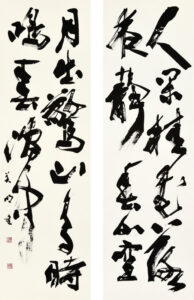 人閑桂花落
夜靜春山空
月出驚山鳥時
鳴春澗中